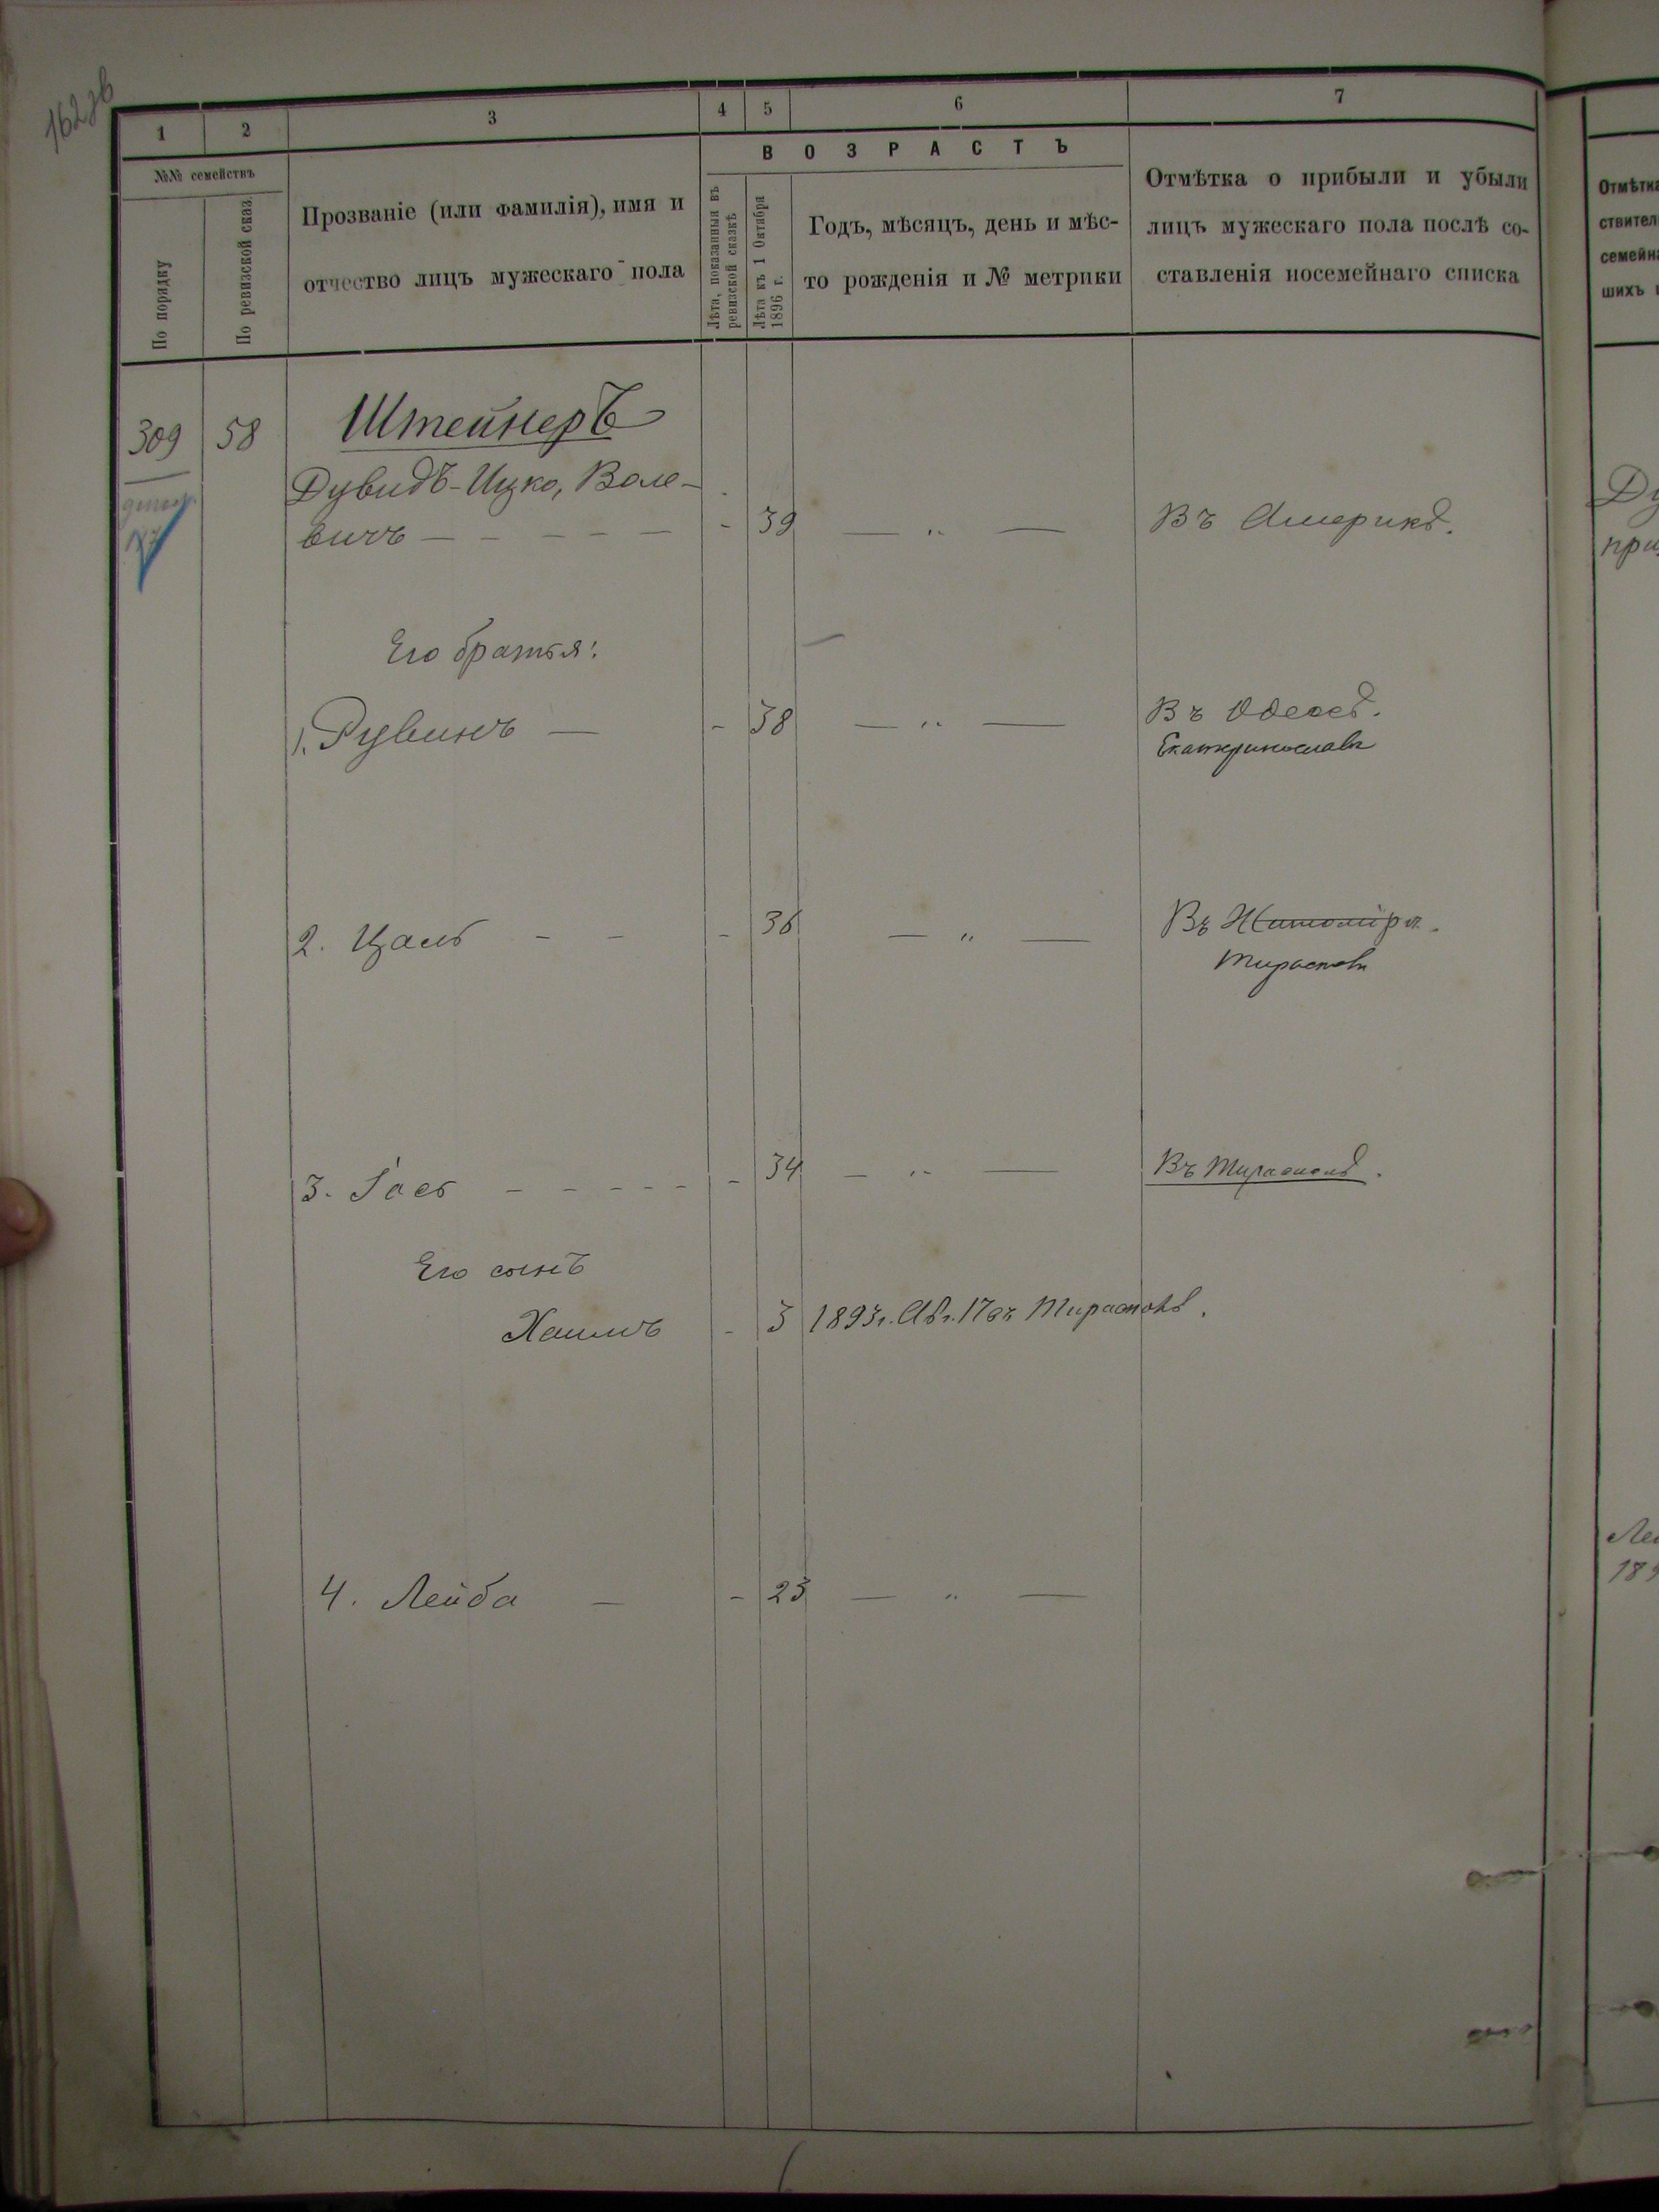 1 2 3 4 5 6 7
№№ семействъ
По порядку
По ревизской сказ.
Прозваніе (или фамилія), имя и
отчество лицъ мужескаго пола
ВОЗРАСТЪ
Лѣта, показанныя въ
ревизской сказкѣ
Лѣта къ 1 Октября
1896 г.
Годъ, мѣсяцъ, день и мѣс-
то рожденія и № метрики
Отмѣтка о прибыли и убыли
лицъ мужескаго пола послѣ со-
ставленія посемейнаго списка
309 58 Штейнеръ
Дувидъ-Ицко, Воле-
вичъ - 39 — " — Въ Америкѣ.
Его братья:
1. Рувинъ — - 38 — " — Въ Одессѣ.
Екатеринославъ
2. Цаль - - - 36 — " — Въ Житомірѣ.
Тирасполь
3. Іось - - - - - - 34 — " — Въ Тирасполѣ.
Его сынъ
Хаимъ - 3 1893 г. Авг. 17 въ Тирасполѣ.
4. Лейба — - 23 — " —
Отмѣтка
ствител
семейн
шихъ
Ду
при
Ле
189